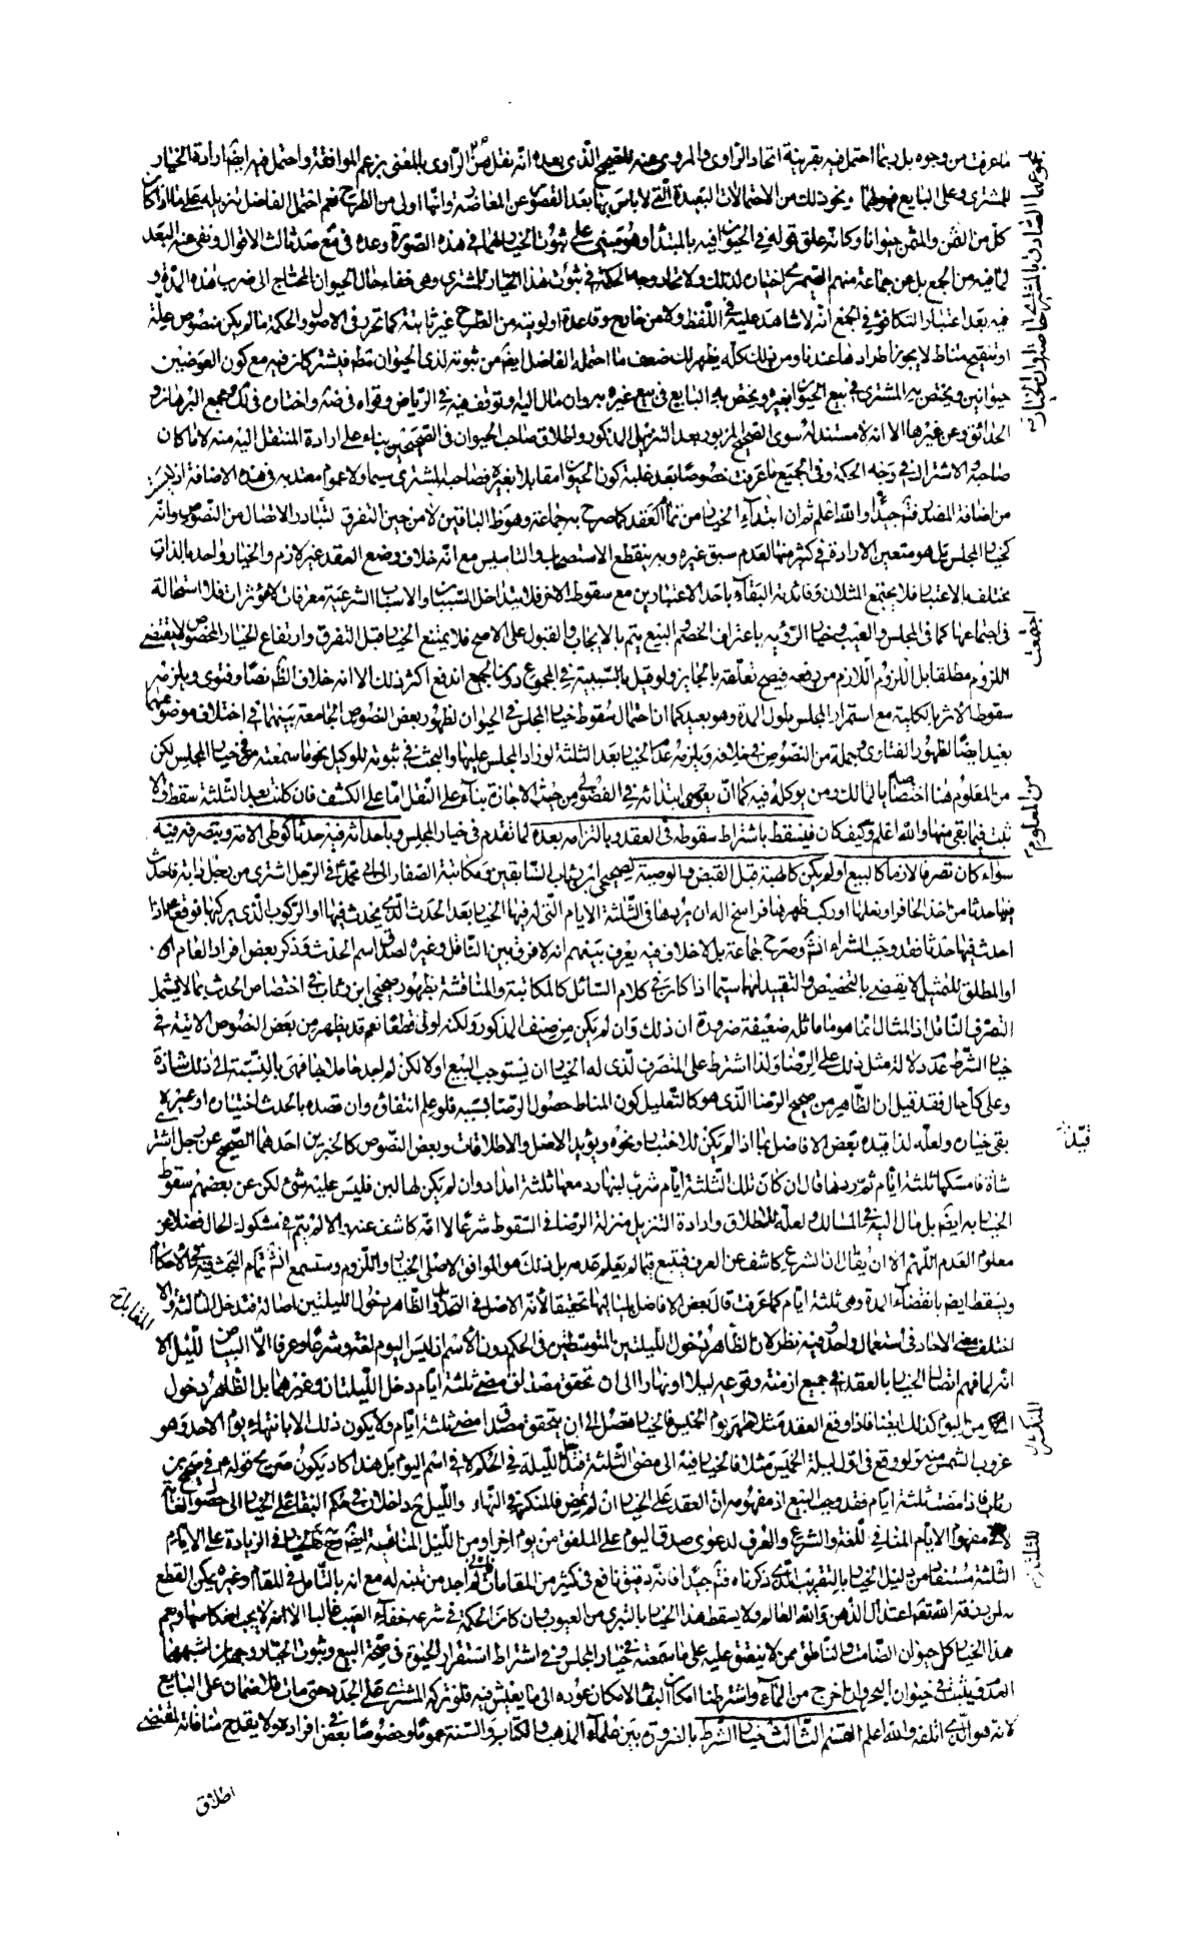 ما عرفت من وجوه بل ربما احتمل فيه بقرينة اتحاد الراوي والمروي عنه للصحيح الذي بعده انه نقل من الراوي بالمعنى بزعم الموافقة واحتمل فيه ايضا ارادة الخيار
للمشتري وعلى البايع ونحو ذلك من الاحتمالات البعيدة التي لا باس بها بعد القصور عن المعارضة وانها اولى من الطرح نعم احتمل الفاضل تنزيله على ما اذا كان
كل من الثمن والمثمن حيوانا وكانه علق قوله في الحيوان فيه بالمبتدأ وهو مبني على ثبوت الخيار لهما في هذه الصورة وعده في مع صد ثالث الاقوال ونفى عنه البعد
لما فيه من الجمع بل عن جماعة منهم الصيمري اختياره لذلك ولاتحاد وجه الحكمة في ثبوت هذا الخيار للمشتري وهي خفاء حال الحيوان المحتاج الى ضرب هذه المدة و
فيه بعد اعتبار التكافؤ في الجمع انه لا شاهد عليه في اللفظ ولا من خارج وقاعدة اولويته من الطرح غير ثابتة كما تحرر في الاصول والحكمة ما لم يكن منصوص علة
او تنقيح مناط لا يجوز اطرادها عندنا ومن ذلك كله يظهر لك ضعف ما احتمله الفاضل ايضا من ثبوته لذي الحيوان مطلقا فيشتركان فيه مع كون العوضين
حيوانين ويختص به المشتري في بيع الحيوان بغيره ويختص به البايع في بيع غيره به وان مال اليه وتوقف فيه في الرياض وقواه في ضه واختاره في لك ومجمع البرهان و
الحدائق وعن غيرها الا انه لا مستند له سوى الصحيح المزبور بعد التنزيل المذكور واطلاق صاحب الحيوان في الصحيحين بناء على ارادة المنتقل اليه منه لا ما كان
صاحبه الاشتراك في وجه الحكمة وفي الجميع ما عرفت خصوصا بعد غلبة كون الحيوان مقابلا بغيره فصاحبه المشتري سيما ولا عموم معتد به في هذه الاضافة اذ ليست
من اضافة المصدر فتأمل جيدا والله اعلم ثم ان ابتداء الخيار من تمام العقد كما صرح به جماعة وهو ظ الباقين لا من حين التفرق لتبادر الاتصال من النصوص وانه
كخيار المجلس بل هو متعين الارادة في كثير منها لعدم سبق غيره وبه ينقطع الاستصحاب والتاسيس مع انه خلاف وضع العقد غير لازم والخيار واحد بالذات
مختلف بالاعتبار فلا يجتمع المثلان وفائدته البقاء باحد الاعتبارين مع سقوط الاخر فلا يتداخل السببان والاسباب الشرعية معرفات لا مؤثرات فلا استحالة
في اجتماعها كما في المجلس والعيب وخيار الرؤية باعتراف الخصم والبيع يتم بالايجاب والقبول على الاصح فلا يمتنع الخيار قبل التفرق وارتفاع الخيار المخصوص لا يقتضي
اللزوم مطلقا بل اللزوم اللازم من رفعه فيصح تعلقه بالجايز ولو قيل بالسببية في المجموع دون الجمع اندفع اكثر ذلك الا انه خلاف الظ نصا وفتوى ويلزمه
سقوط الاثر بالكلية مع استمرار المجلس بطول المدة وهو بعيد كما ان احتمال سقوط خيار المجلس في الحيوان لظهور بعض النصوص الجامعة بينهما في اختلاف موضوعهما
بعيد ايضا لظهور الفتاوى وجملة من النصوص في خلافه ويلزمه عدم الخيار بعد الثلثة لو زاد المجلس عليها والبحث في ثبوته للوكيل نحو ما سمعته في خيار المجلس لكن
من المعلوم هنا اختصاصه بالمالك ومن يوكله فيه كما انه ابتدائه في الفضولي من حيث الاجازة بناء على النقل اما على الكشف فان كانت بعد الثلثة سقط والا
ثبت فيما بقي منها والله اعلم وكيف كان فيسقط باشتراط سقوطه في العقد وبالتزامه بعده لما تقدم في خيار المجلس وباحداثه فيه حدثا كوطي الامة وبتصرفه فيه
سواء كان تصرفا لازما كالبيع او لم يكن كالهبة قبل القبض والوصية لصحيحي ابن رئاب السابقين ومكاتبة الصفار الى ابي محمد ع في الرجل اشترى من رجل دابة فاحدث
فيها حدثا من اخذ الحافر او نعلها او ركب ظهرها فراسخ اله ان يردها في الثلثة الايام التي له فيها الخيار بعد الحدث الذي يحدث فيها او الركوب الذي يركبها فوقع ع اذا
احدث فيها حدثا فقد وجب الشراء انشاء الله وصرح جماعة بل لا خلاف فيه يعرف بينهم انه لا فرق بين الناقل وغيره لصدق اسم الحدث وذكر بعض افراد العام
او المطلق للتمثيل لا يقضي بالتخصيص والتقييد لهما سيما اذا كان في كلام السائل كالمكاتبة والمناقشة بظهور صحيحي ابن رئاب في اختصاص الحدث بما لا يشمل
التصرف الناقل اذ المثال انما هو ما ماثله ضعيفة ضرورة ان ذلك وان لم يكن من صنف المذكور ولكنه اولى قطعا نعم قد يظهر من بعض النصوص الاتية في
خيار الشرط عدم دلالة مثل ذلك على الرضا ولذا اشترط على المتصرف الذي له الخيار ان يستوجب البيع اولا لكن لم اجد عاملا بها فهي بالنسبة الى ذلك شاذة
وعلى كل حال فقد قيل ان الظاهر من صحيح الرضا الذي هو كالتعليل كون المناط حصول الرضا بسببه فلو علم انتفاؤه وان قصده بالحدث اختياره او غيره
بقي خياره ولعله لذا قيده بعض الافاضل بما اذا لم يكن للاختبار ونحوه ويؤيده الاصل والاطلاقات وبعض النصوص كالخبرين احدهما الصحيح عن رجل اشترى
شاة فامسكها ثلثة ايام ثم ردها قال ان كان تلك الثلثة ايام شرب لبنها رد معها ثلثة امداد وان لم يكن لها لبن فليس عليه شيء لكن عن بعضهم سقوط
الخيار به ايضا بل مال اليه في المسالك ولعله للاطلاق وارادة التنزيل منزلة الرضا في السقوط شرعا لا انه كاشف عنه والا لم يتم في مشكوك الحال فضلا عن
معلوم العدم اللهم الا ان يقال ان الشرع كاشف عن العرف فيتبع فيما لم يعلم عدمه بل ذلك هو الموافق لاصلي الخيار واللزوم وستسمع انشاء الله تمام البحث فيه في الاحكام
ويسقط ايضا بانقضاء المدة وهي ثلثة ايام كما عرفت قال بعض الافاضل بلياليها تحقيقا لانه الاصل في التحديد والظاهر دخول الليلتين اصالة فتدخل الثالثة والا
اختلف معنى الاحاد في استعمال واحد وفيه نظر لان الظاهر دخول الليلتين المتوسطتين في الحكم دون الاسم اذ ليس اليوم لغة وشرعا وعرفا الا البياض من الليل الا
انه لما فهم اتصال الخيار بالعقد في جميع ازمنة وقوعه ليلا او نهارا الى ان تحقق مصداق مضي ثلثة ايام دخل الليلتان وغيرهما بل الظاهر دخول
من اليوم كذلك ايضا فاذا وقع العقد مثلا ظهر يوم الخميس فالخيار متصل الى ان يتحقق مصداق مضي ثلثة ايام ولا يكون ذلك الا بانتهاء يوم الاحد وهو
غروب الشمس منه ولو وقع في اول ليلة الخميس مثلا فالخيار فيه الى مضي الثلثة فتدخل الليلة في الحكم لا في اسم اليوم بل هذا كاد يكون صريح قوله ع في صحيح ابن
رئاب فاذا مضت ثلثة ايام فقد وجب البيع اذ مفهومه ان العقد على الخيار ان لم تمض فالمنكسر في النهار والليل ح داخلان في حكم البقاء على الخيار الى حصول الغاية
لا في مفهوم الايام المنافي للغة والشرع والعرف لدعوى صدق اليوم على الملفق من يوم اخر او من الليل المنافية ايضا ح في الزيادة على الايام
الثلثة مستفاد من دليل الخيار بالتقريب الذي ذكرناه فتأمل جيدا فانه دقيق نافع في كثير من المقامات ولم اجد من تنبه له مع انه بالتامل في المقام وغيره يمكن القطع
به لمن رزقه الله تعالى اعتدال الذهن والله العالم ولا يسقط هذا الخيار بالتبري من العيوب وان كان الحكمة في شرعه خفاء العيب غالبا الا انه لا يجب انعكاسها ويعم
هذا الخيار كل حيوان الصامت والناطق ممن لا ينعتق عليه على ما سمعته في خيار المجلس وفي اشتراط استقرار الحيوة في صحة البيع وثبوت الخيار وجهان اشبههما
العدم فيثبت في حيوان البحر ان اخرج من الماء واشترطنا امكان البقاء لامكان عوده الى ما يعيش فيه فلو تركه المشتري على الجدد حتى مات فلا ضمان على البايع
لانه هو الذي اتلفه والله اعلم القسم الثالث خيار الشرط بالضرورة بين علماء المذهب والكتاب والسنة عموما وخصوصا في بعض افراده ولا يقدح منافاته لمقتضى
اطلاق
من المعلوم
قيد